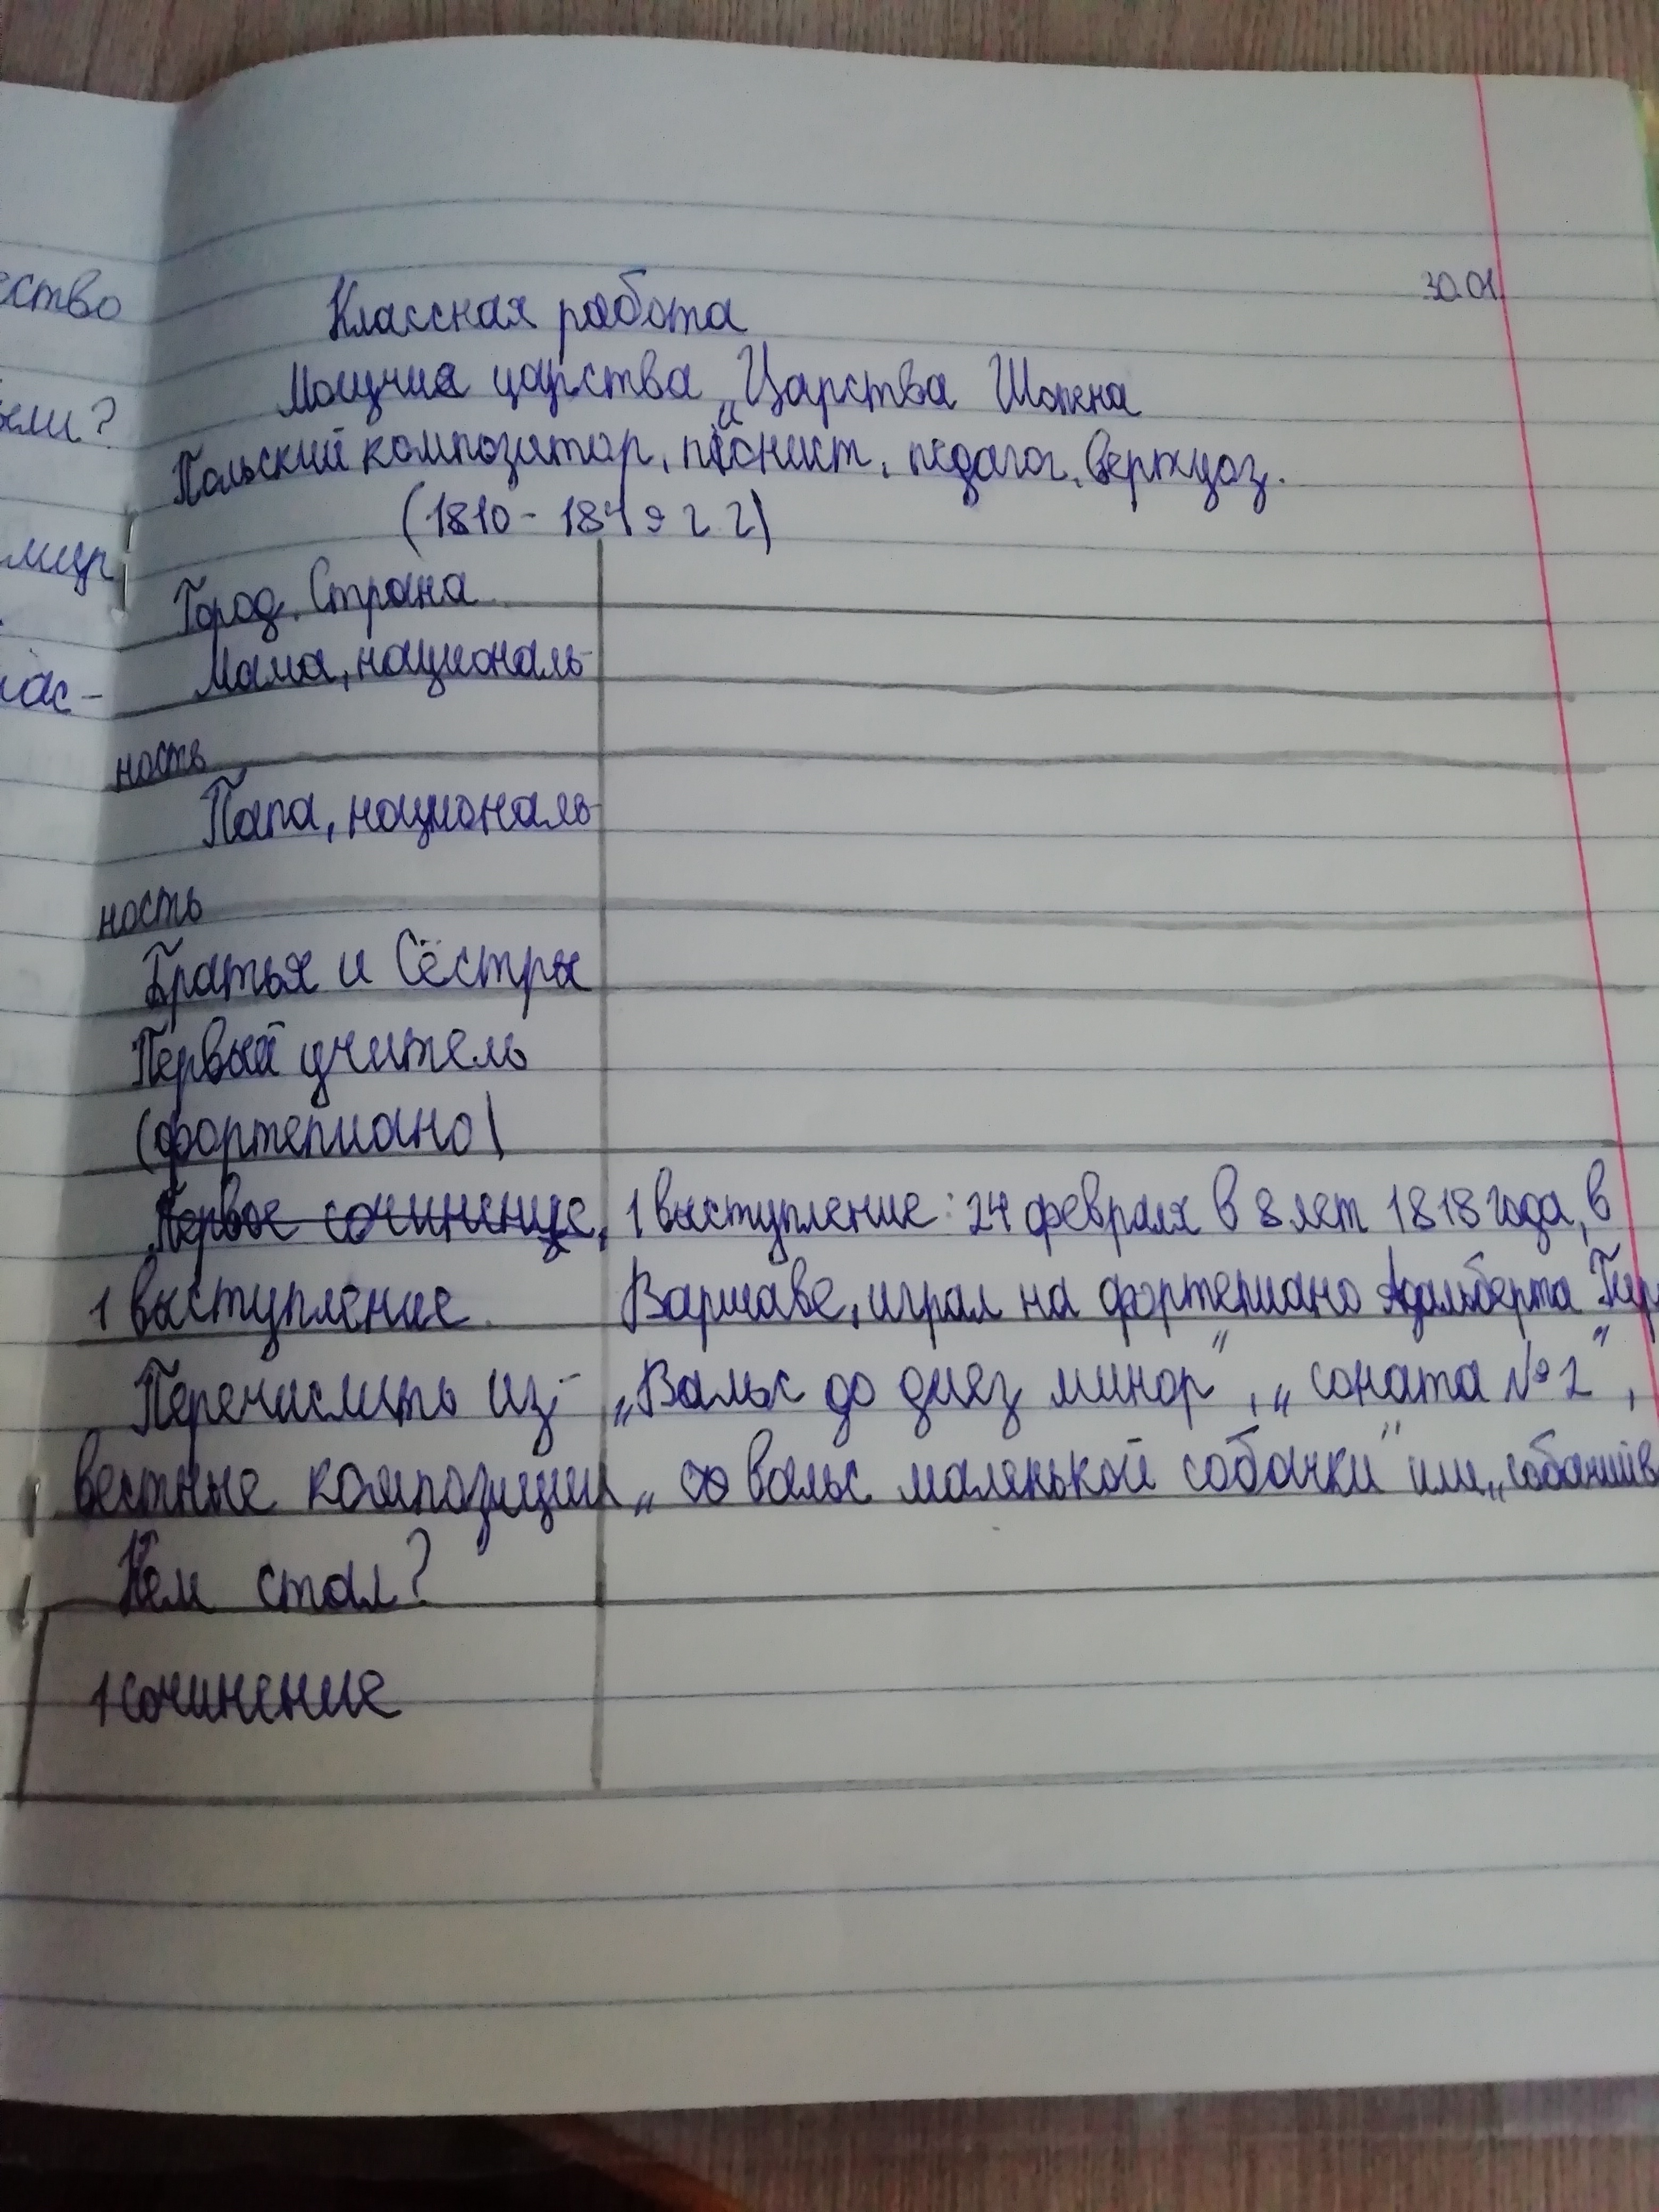 30.01
Классная работа
царства „Царства Шопена
Польский композитор, пионист, педагог, вертуоз.
(1810 - 1849 г г)
Город. Страна
Мама, националь-
ность
Папа, националь-
ность
Братья и Сёстры
Первый учитель
(фортепиано)
Первое сочинение, 1 выступление: 24 февраля в 8 лет 1818 года, в
1 выступление Варшаве, играл на фортепиано Адальберта
Перечислить из- „Вальс до диез минор", „соната №2",
вестные композиции „вальс маленькой собачки" или „
Кем стал?
1 сочинение
ество
ели?
мир
ас-